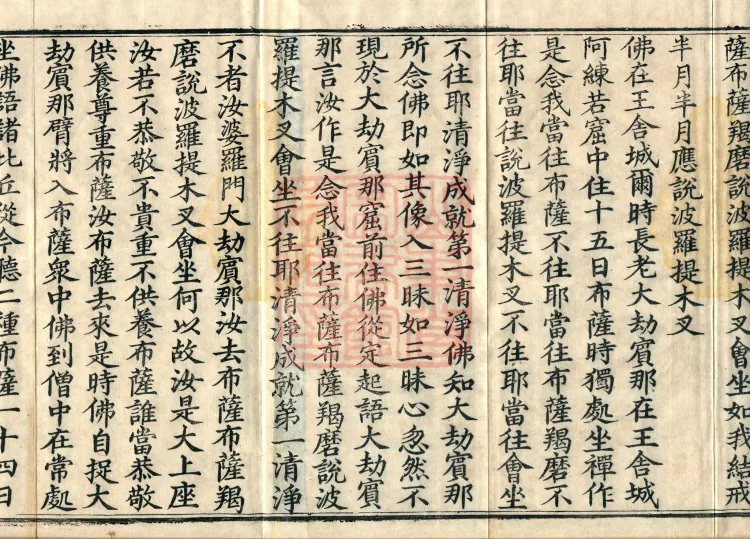 薩布薩羯磨說波羅提木叉會坐如我結戒
半月半月應說波羅提木叉
佛在王舍城爾時長老大劫賓那在王舍城
阿練若窟中住十五日布薩時獨處坐禪作
是念我當往布薩不往耶當往布薩羯磨不
往耶當往說波羅提木叉不往耶當往會坐
不往耶清淨成就第一清淨佛知大劫賓那
所念佛即如其像入三昧如三昧心忽然不
現於大劫賓那窟前住佛從定起語大劫賓
那言汝作是念我當往布薩布薩羯磨說波
羅提木叉會坐不往耶清淨成就第一清淨
不者汝婆羅門大劫賓那汝去布薩布薩羯
磨說波羅提木叉會坐何以故汝是大上座
汝若不恭敬不貴重不供養布薩誰當恭敬
供養尊重布薩汝布薩去來是時佛自捉大
劫賓那臂將入布薩衆中佛到僧中在常處
坐佛語諸比丘從今聽二種布薩一十四日